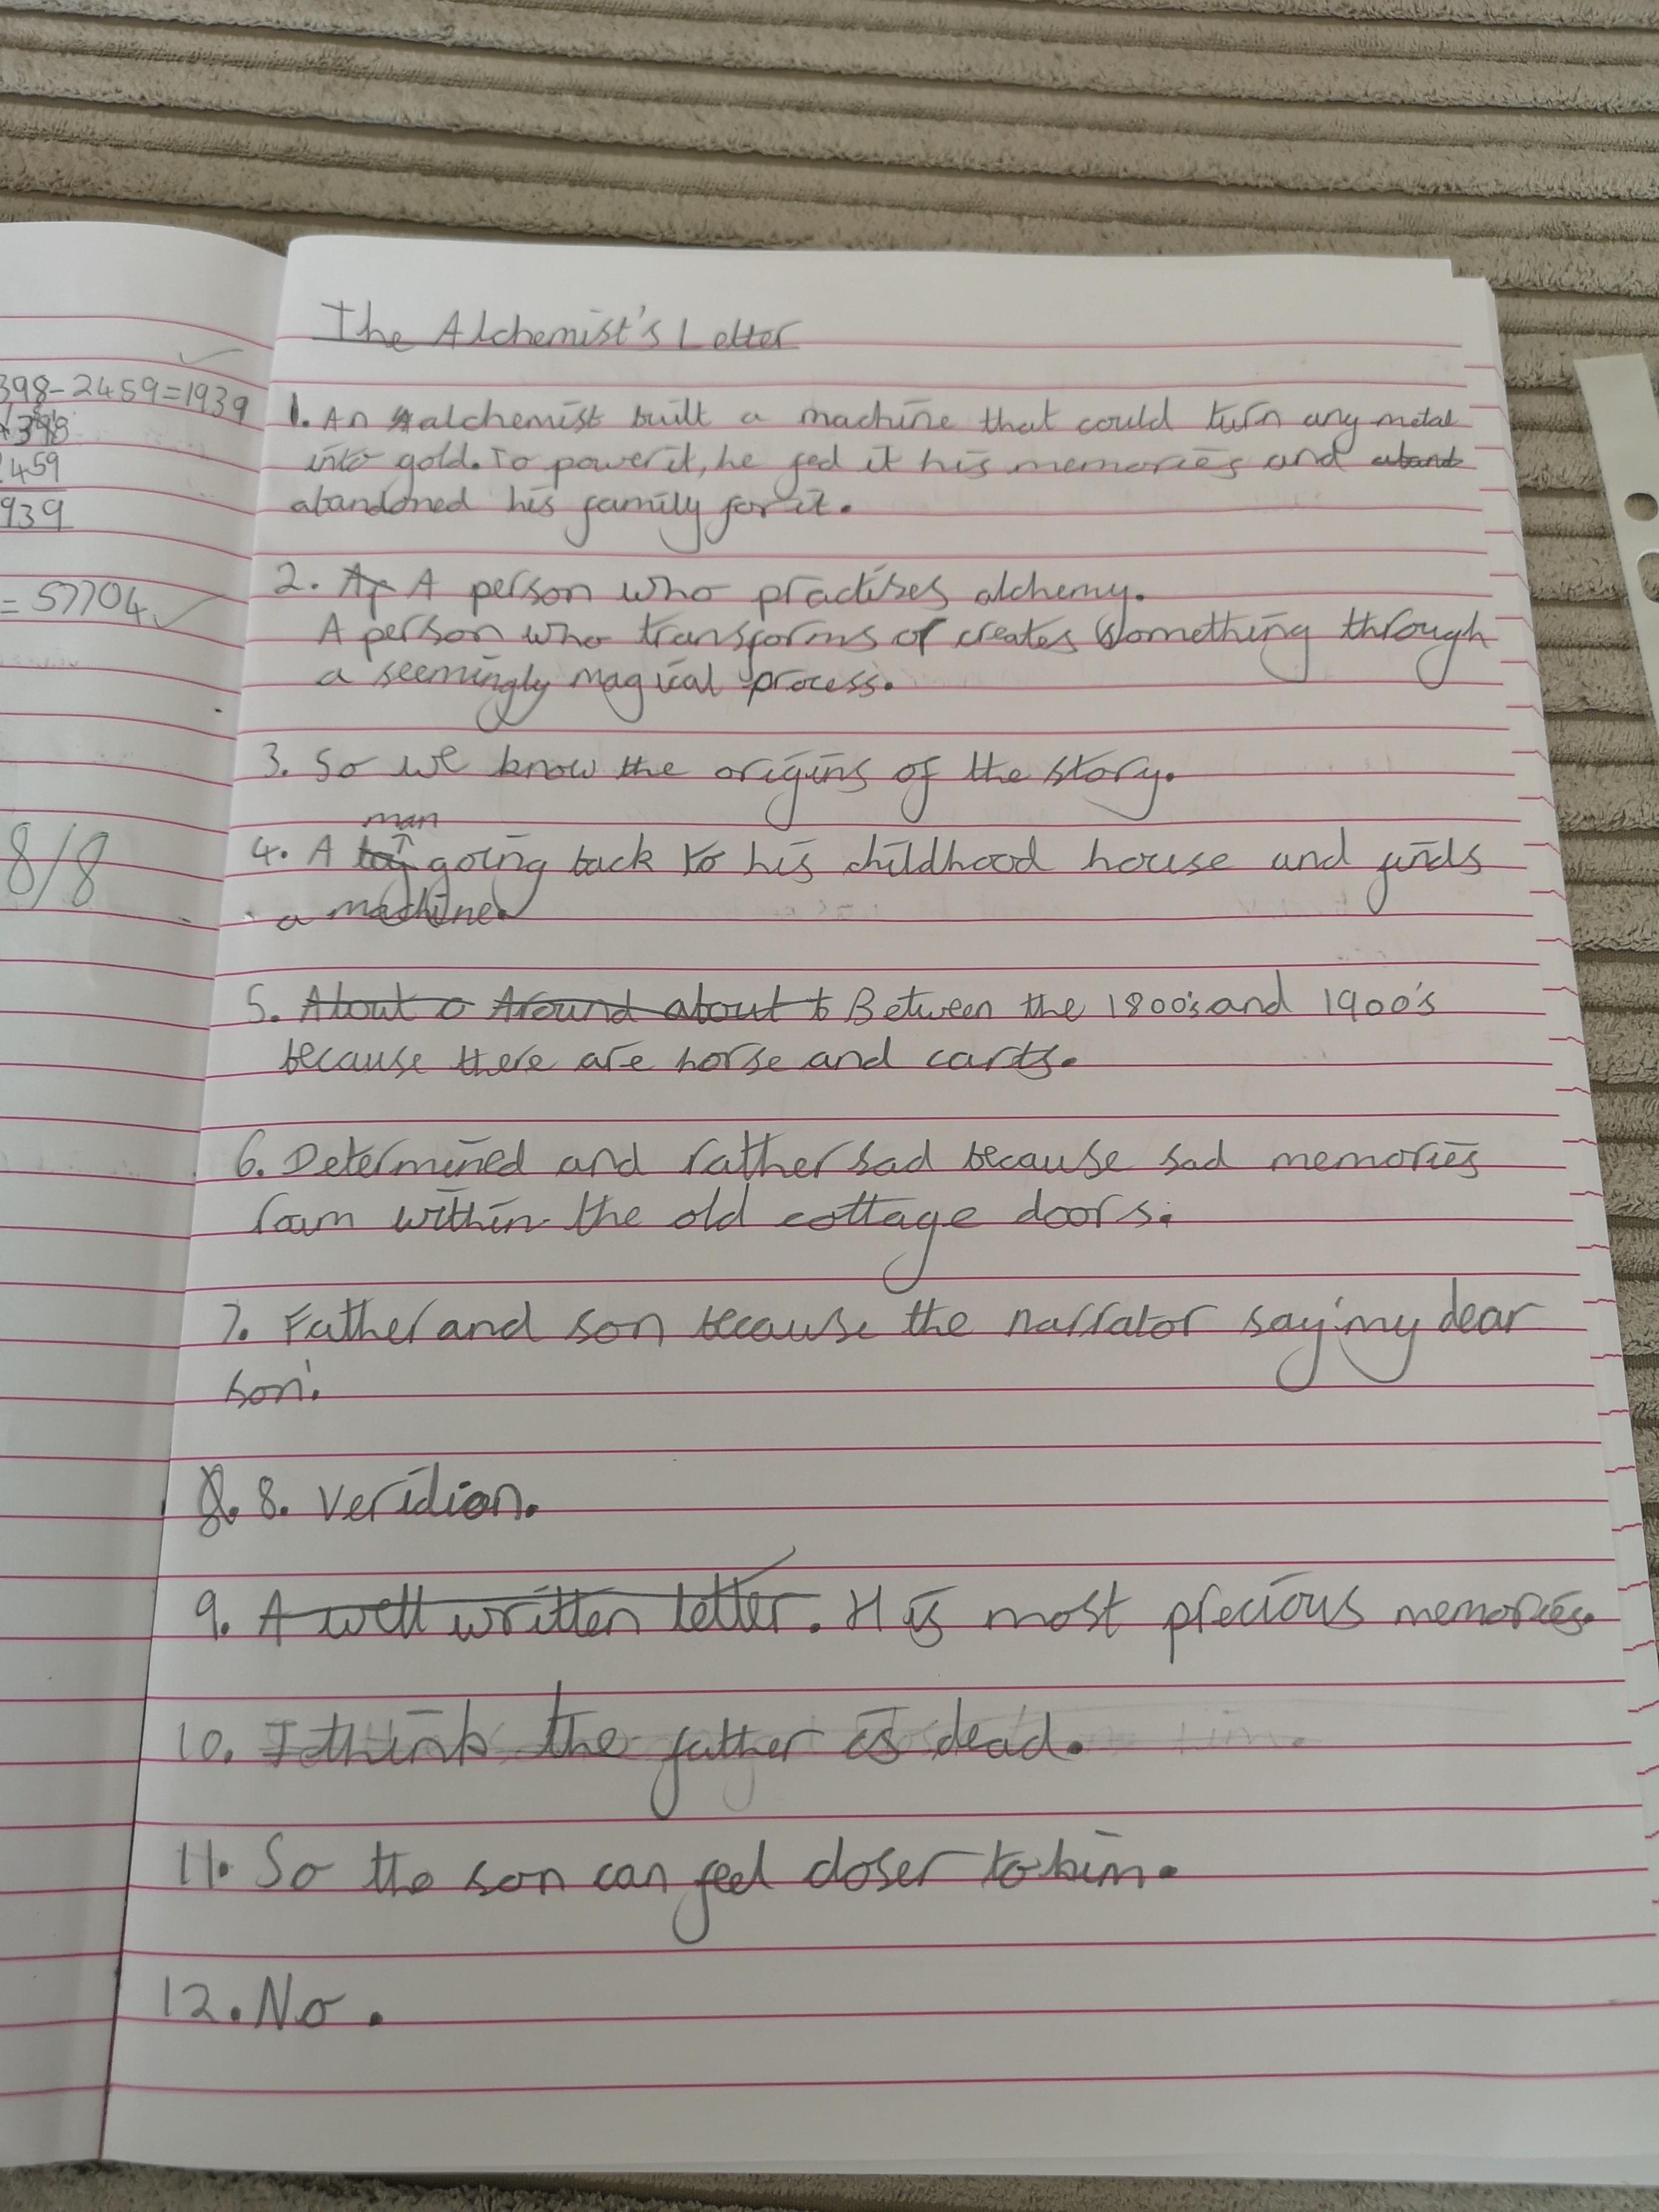 The Alchemist's Letter
398-2459=1939
4398
2459
939
= 57704
8/8
1. An alchemist built a machine that could turn any metal
into gold. To power it, he fed it his memories and aband
abandoned his family for it.
2. A person who practises alchemy.
A person who transforms or creates something through
a seemingly magical process.
3. So we know the origins of the story.
man
4. A boy going back to his childhood house and finds
a machine.
5. About a Around about t Between the 1800's and 1900's
because there are horse and carts.
6. Determined and rather sad because sad memories
roam within the old cottage doors.
7. Father and son because the narrator say 'my dear
son'.
8. 8. Veridian.
9. A well written letter. His most precious memories.
10. I think the father is dead.
11. So the son can feel closer to him.
12. No.